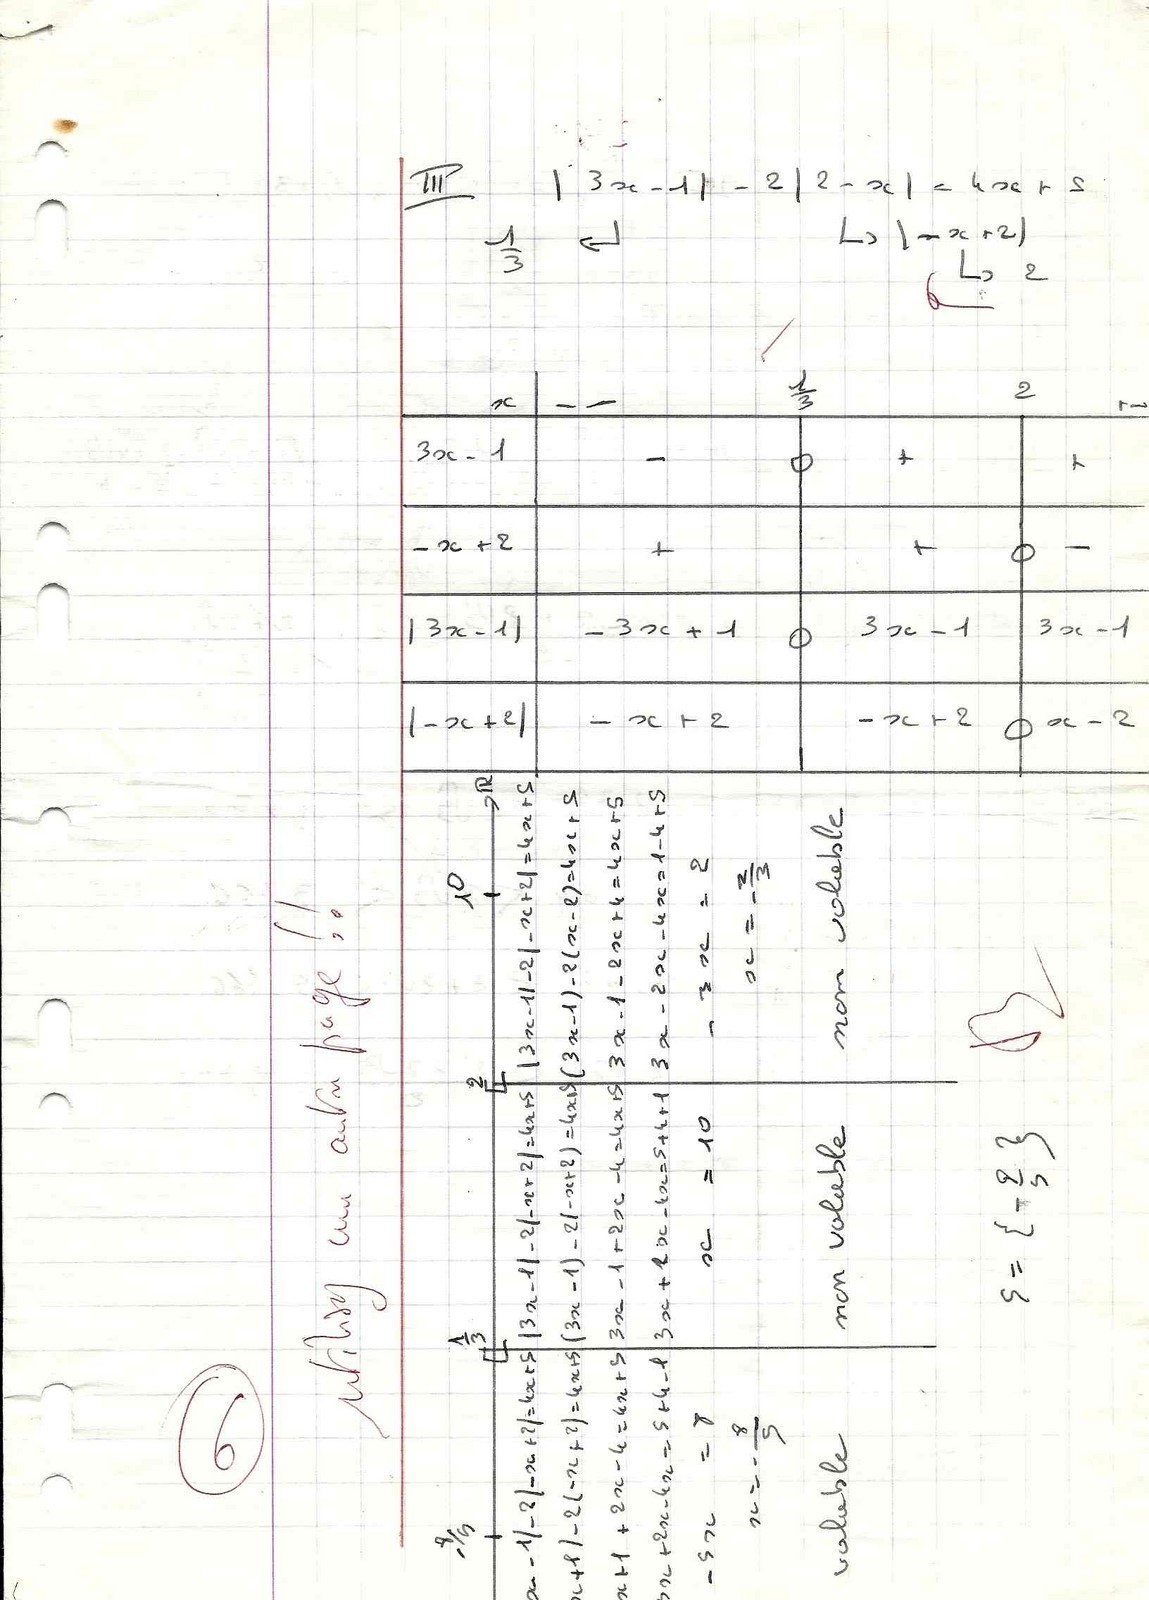 III |3x-1| - 2|2-x| = 4x+5
1/3 ↵ ↳ |-x+2|
↳ 2
x -- 1/3 2 +
3x-1 - 0 + +
-x+2 + + 0 -
|3x-1| -3x+1 0 3x-1 3x-1
|-x+2| -x+2 -x+2 0 x-2
-8/5 1/3 2 10 ℝ
x-1|-2|-x+2|=4x+5
x+1)-2(-x+2)=4x+5
x+1+2x-4=4x+5
3x+2x-4x=5+4-1
-5x = 8
x=-8/5
valable
|3x-1|-2|-x+2|=4x+5
(3x-1)-2(-x+2)=4x+5
3x-1+2x-4=4x+5
3x+2x-4x=5+4+1
x = 10
non valable
|3x-1|-2|-x+2|=4x+5
(3x-1)-2(x-2)=4x+5
3x-1-2x+4=4x+5
3x-2x-4x=1-4+5
-3x=2
x=-2/3
non valable
S={-8/5}
utilisez une autre page !!
6